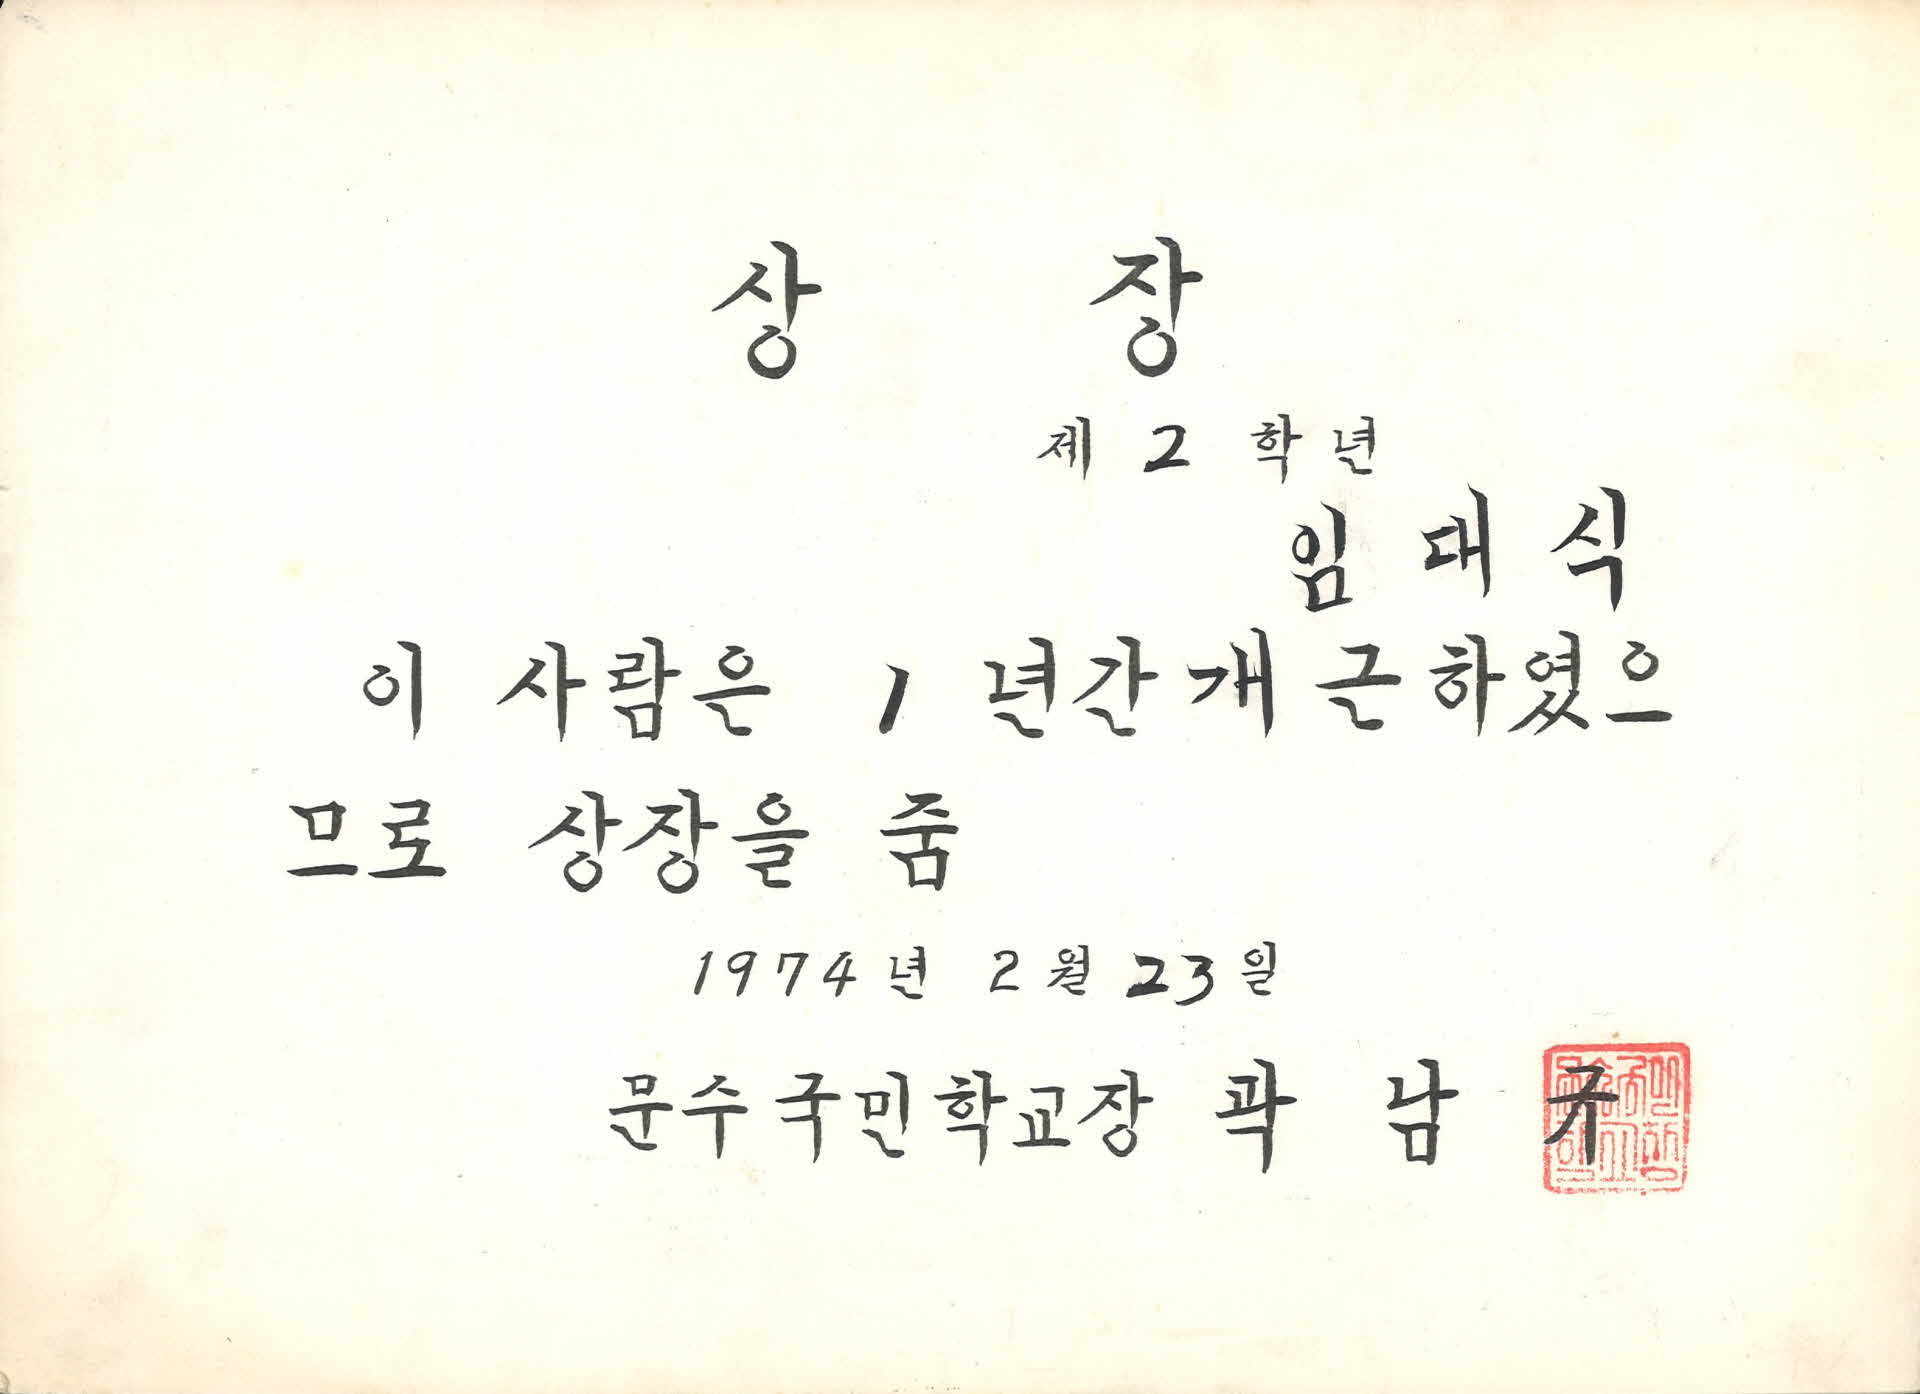 상 장
제 2 학년
임 대 식
이 사람은 1 년간 개근하였으
므로 상장을 줌
1974년 2월 23일
문수국민학교장 곽 남 규